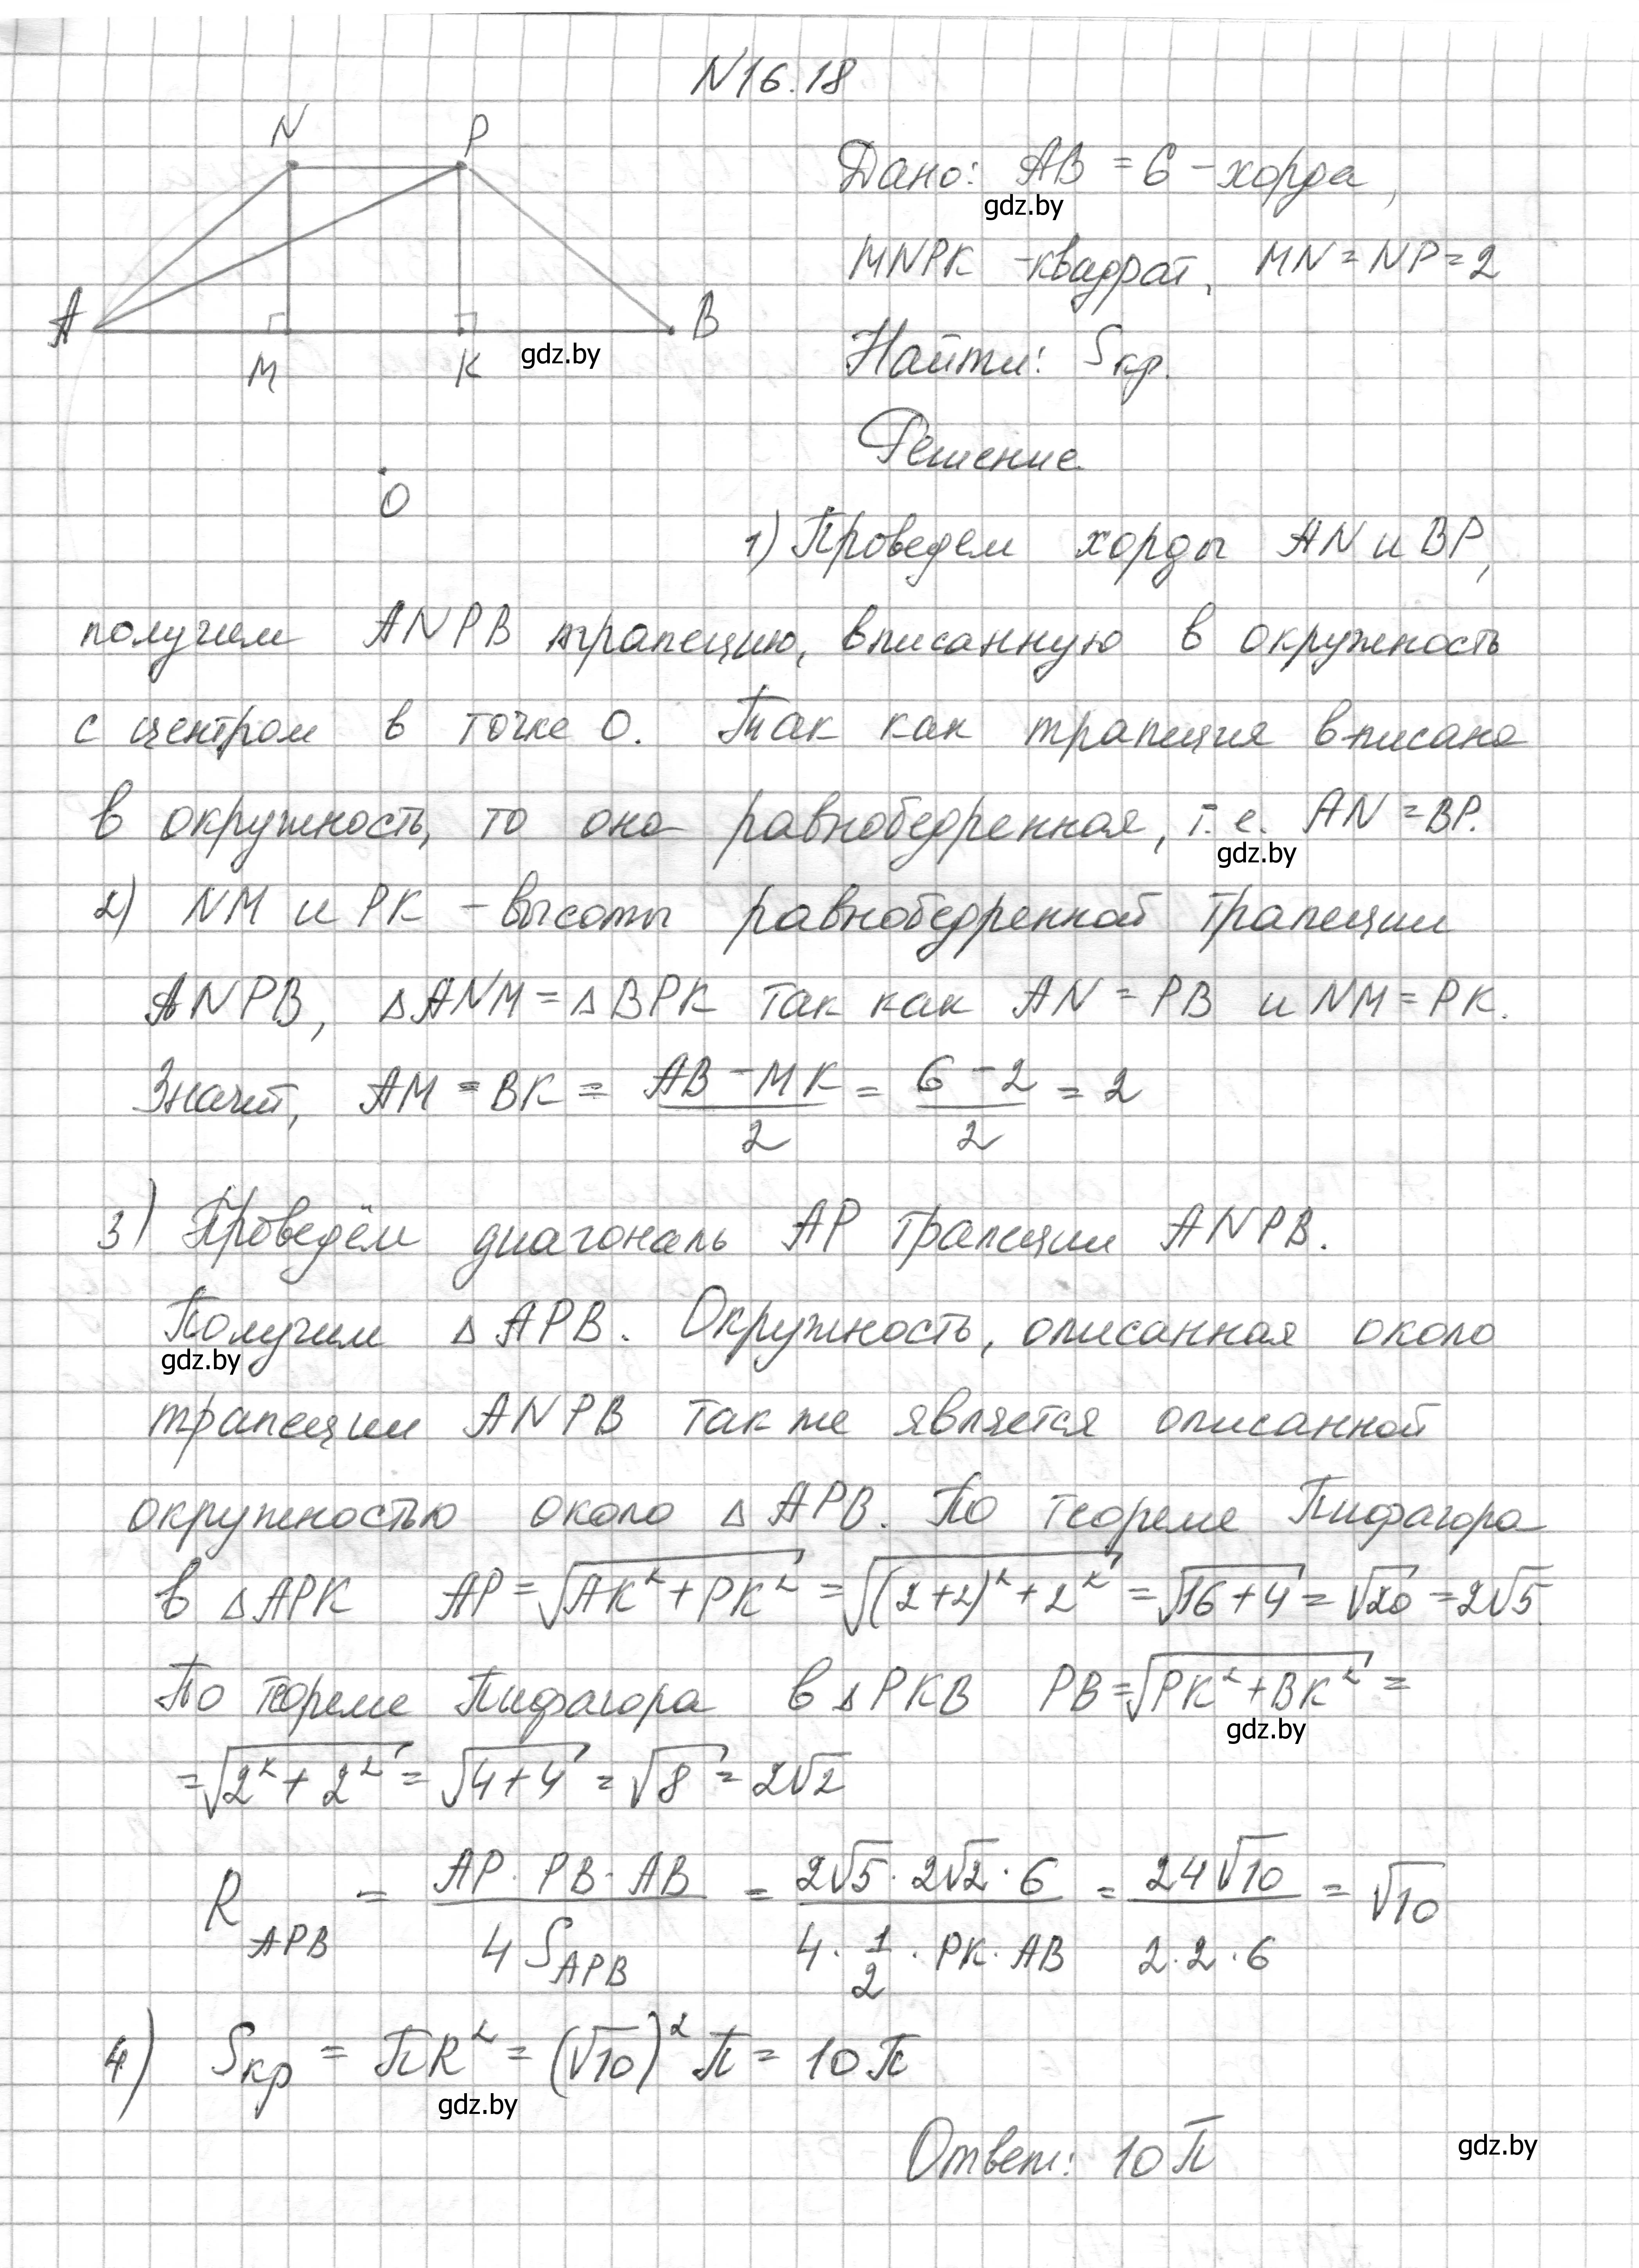 N16.18
N P
A M K B
O
Дано: AB = 6 - хорда,
gdz.by
MNPK - квадрат, MN = NP = 2
gdz.by
Найти: Sкр.
Решение
1) Проведем хорды AN и BP,
получим ANPB трапецию, вписанную в окружность
с центром в точке O. Так как трапеция вписана
в окружность, то она равнобедренная, т.е. AN = BP.
gdz.by
2) NM и PK - высоты равнобедренной трапеции
ANPB, △ANM = △BPK так как AN = PB и NM = PK.
Значит, AM = BK = (AB - MK)/2 = (6 - 2)/2 = 2
3) Проведём диагональ AP трапеции ANPB.
Получим △APB. Окружность, описанная около
gdz.by
трапеции ANPB так же является описанной
окружностью около △APB. По теореме Пифагора
в △APK AP = √(AK² + PK²) = √((2+2)² + 2²) = √(16+4) = √20 = 2√5.
По теореме Пифагора в △PKB PB = √(PK² + BK²) =
gdz.by
= √(2² + 2²) = √(4+4) = √8 = 2√2
R_APB = (AP · PB · AB)/(4 S_APB) = (2√5 · 2√2 · 6)/(4 · 1/2 · PK · AB) = (24√10)/(2·2·6) = √10
4) Sкр = πR² = (√10)² π = 10π
gdz.by
Ответ: 10π
gdz.by